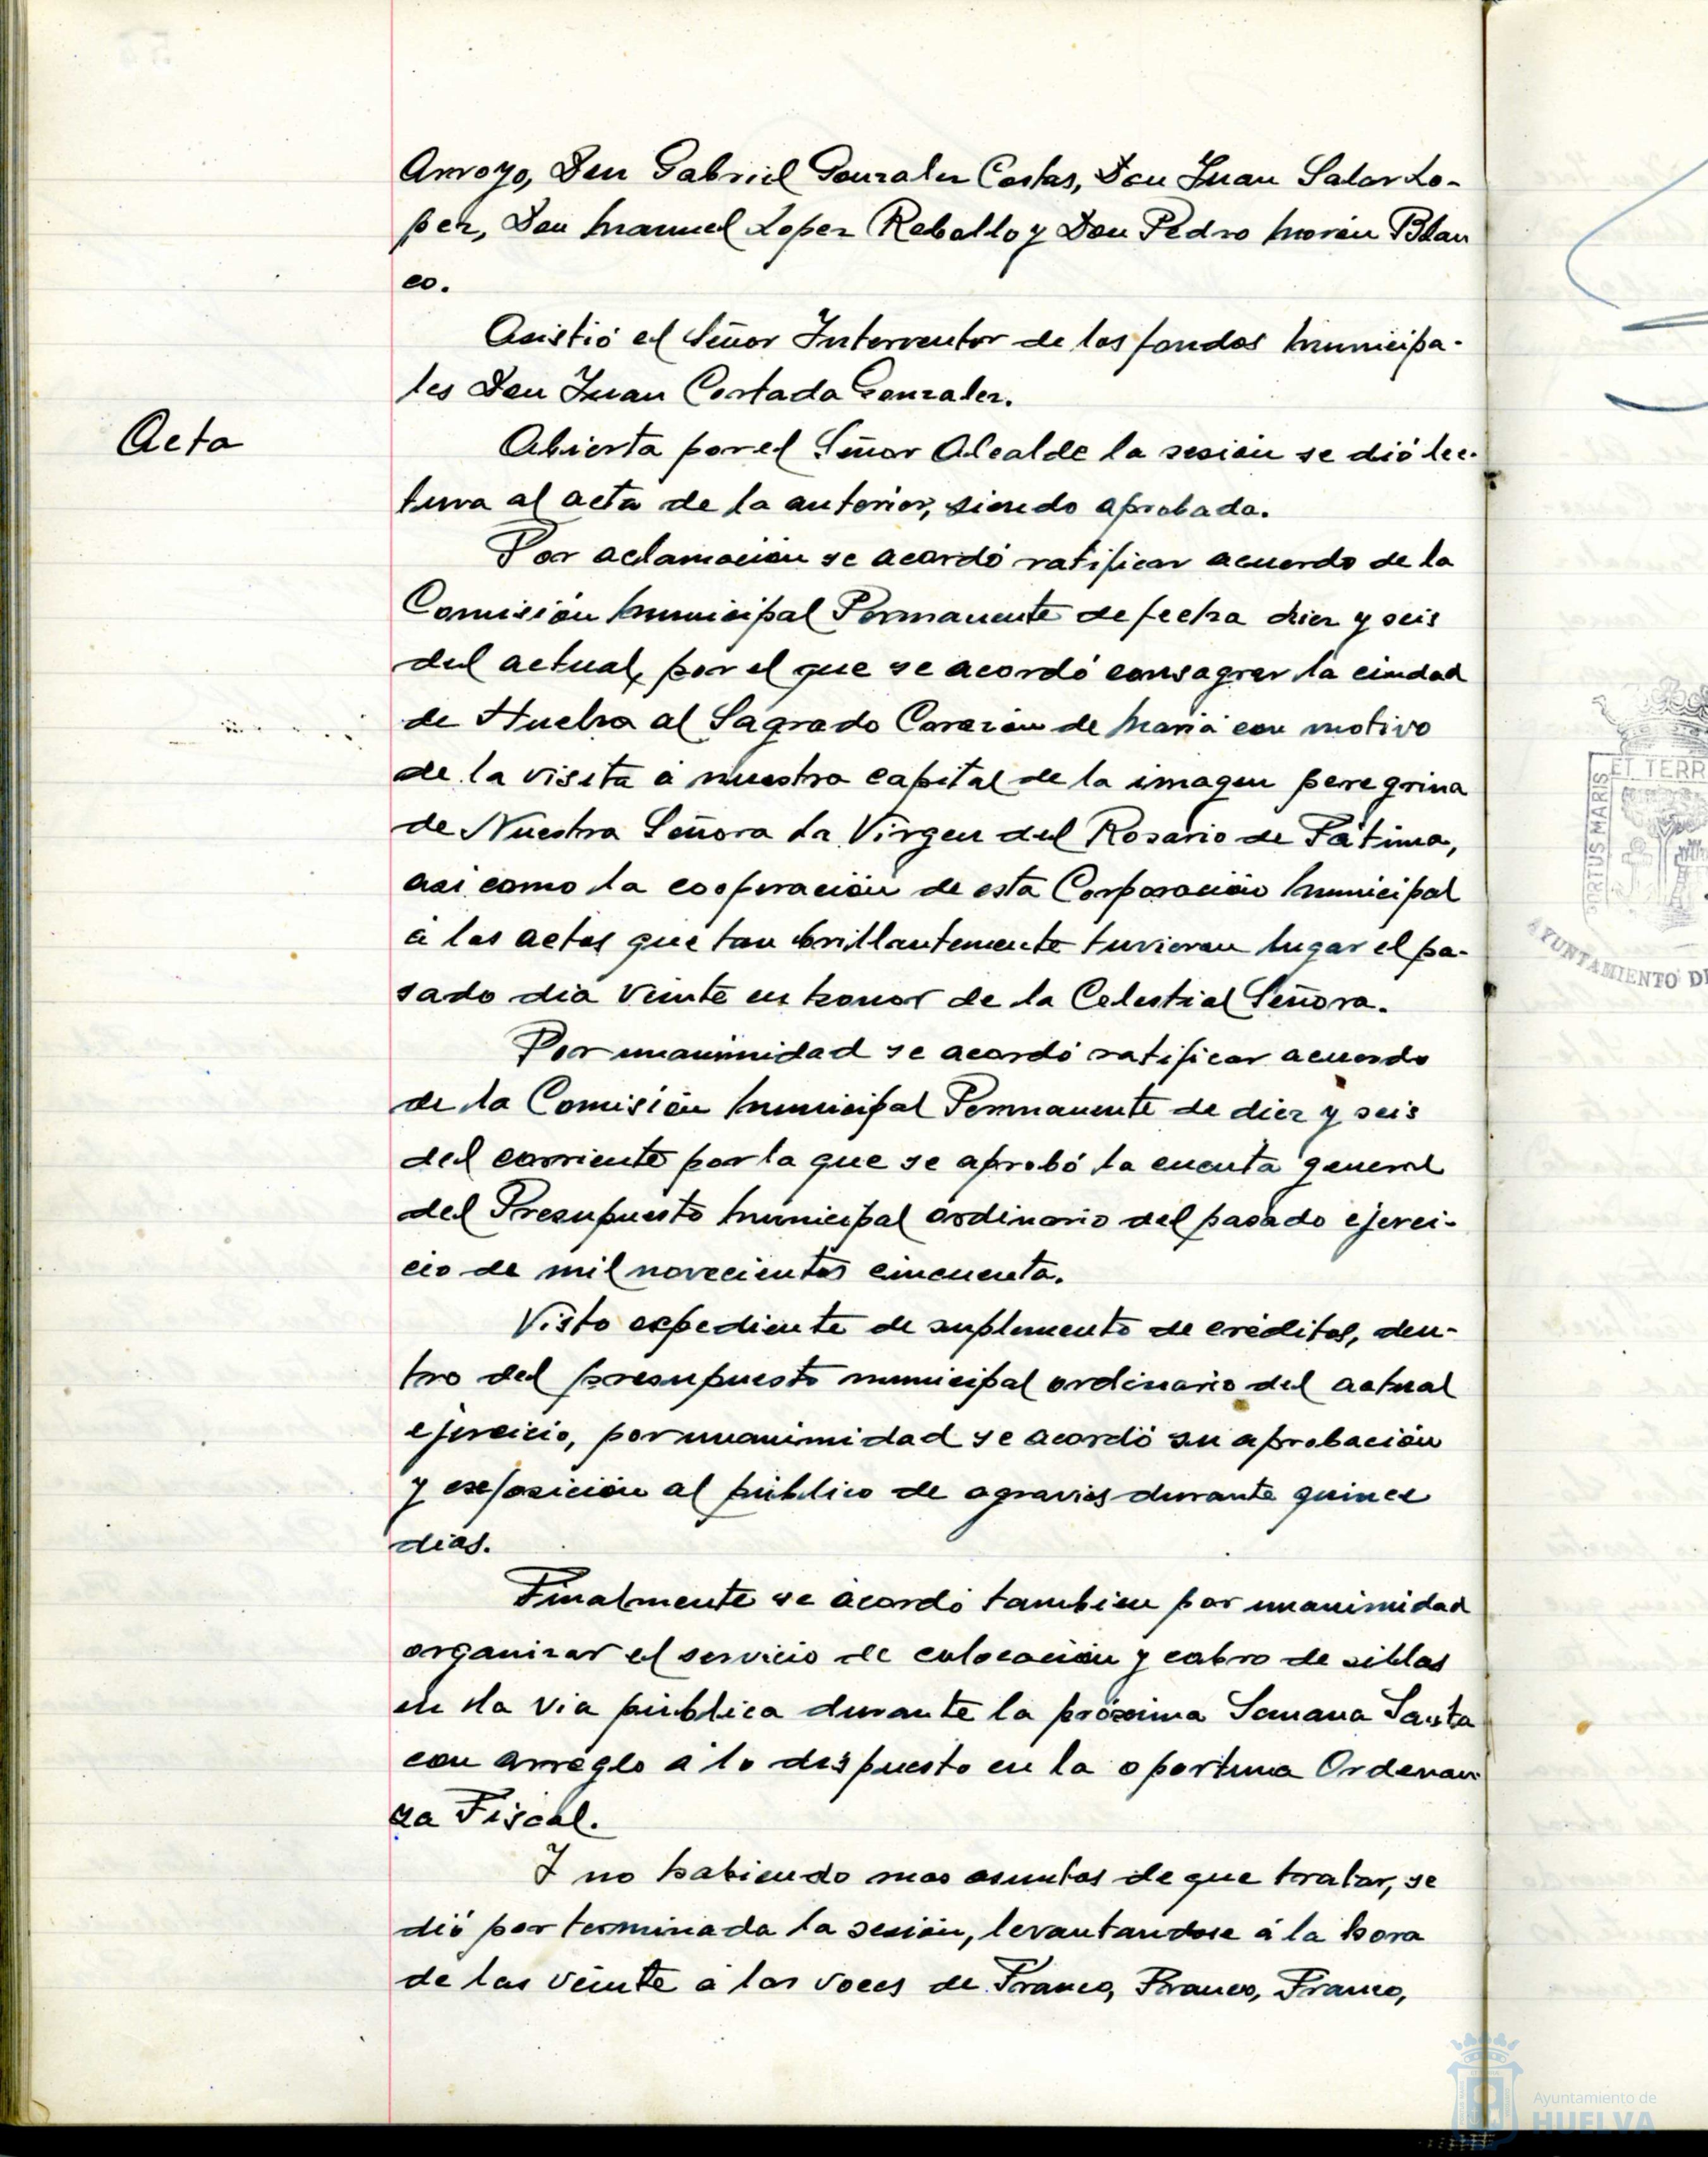 Arroyo, Don Gabriel Gonzalez Costas, Don Juan Salas Lo-
pez, Don Manuel Lopez Rebollo y Don Pedro Morón Blan
co.
Asistió el Señor Interventor de los fondos Municipa-
les Don Juan Cortada Gonzalez.
Acta
Abierta por el Señor Alcalde la sesión se dió lec-
tura al acta de la anterior, siendo aprobada.
Por aclamación se acordó ratificar acuerdo de la
Comisión Municipal Permanente de fecha diez y seis
del actual, por el que se acordó consagrar la ciudad
de Huelva al Sagrado Corazón de María con motivo
de la visita á nuestra capital de la imagen peregrina
de Nuestra Señora la Virgen del Rosario de Fátima,
asi como la cooperación de esta Corporación Municipal
á los actos que tan brillantemente tuvieron lugar el pa-
sado dia veinte en honor de la Celestial Señora.
Por unanimidad se acordó ratificar acuerdo
de la Comisión Municipal Permanente de diez y seis
del corriente por la que se aprobó la cuenta general
del Presupuesto Municipal ordinario del pasado ejerci-
cio de mil novecientos cincuenta.
Visto expediente de suplemento de créditos, den-
tro del presupuesto municipal ordinario del actual
ejercicio, por unanimidad se acordó su aprobación
y exposición al público de agravios durante quince
dias.
Finalmente se acordó tambien por unanimidad
organizar el servicio de colocación y cobro de sillas
en la via pública durante la próxima Semana Santa
con arreglo a lo dispuesto en la oportuna Ordenan
za Fiscal.
Y no habiendo mas asuntos de que tratar, se
dió por terminada la sesión, levantandose á la hora
de las veinte a las voces de Franco, Franco, Franco,
ET TERR
PORTUS MARIS
AYUNTAMIENTO DE
Ayuntamiento de
HUELVA